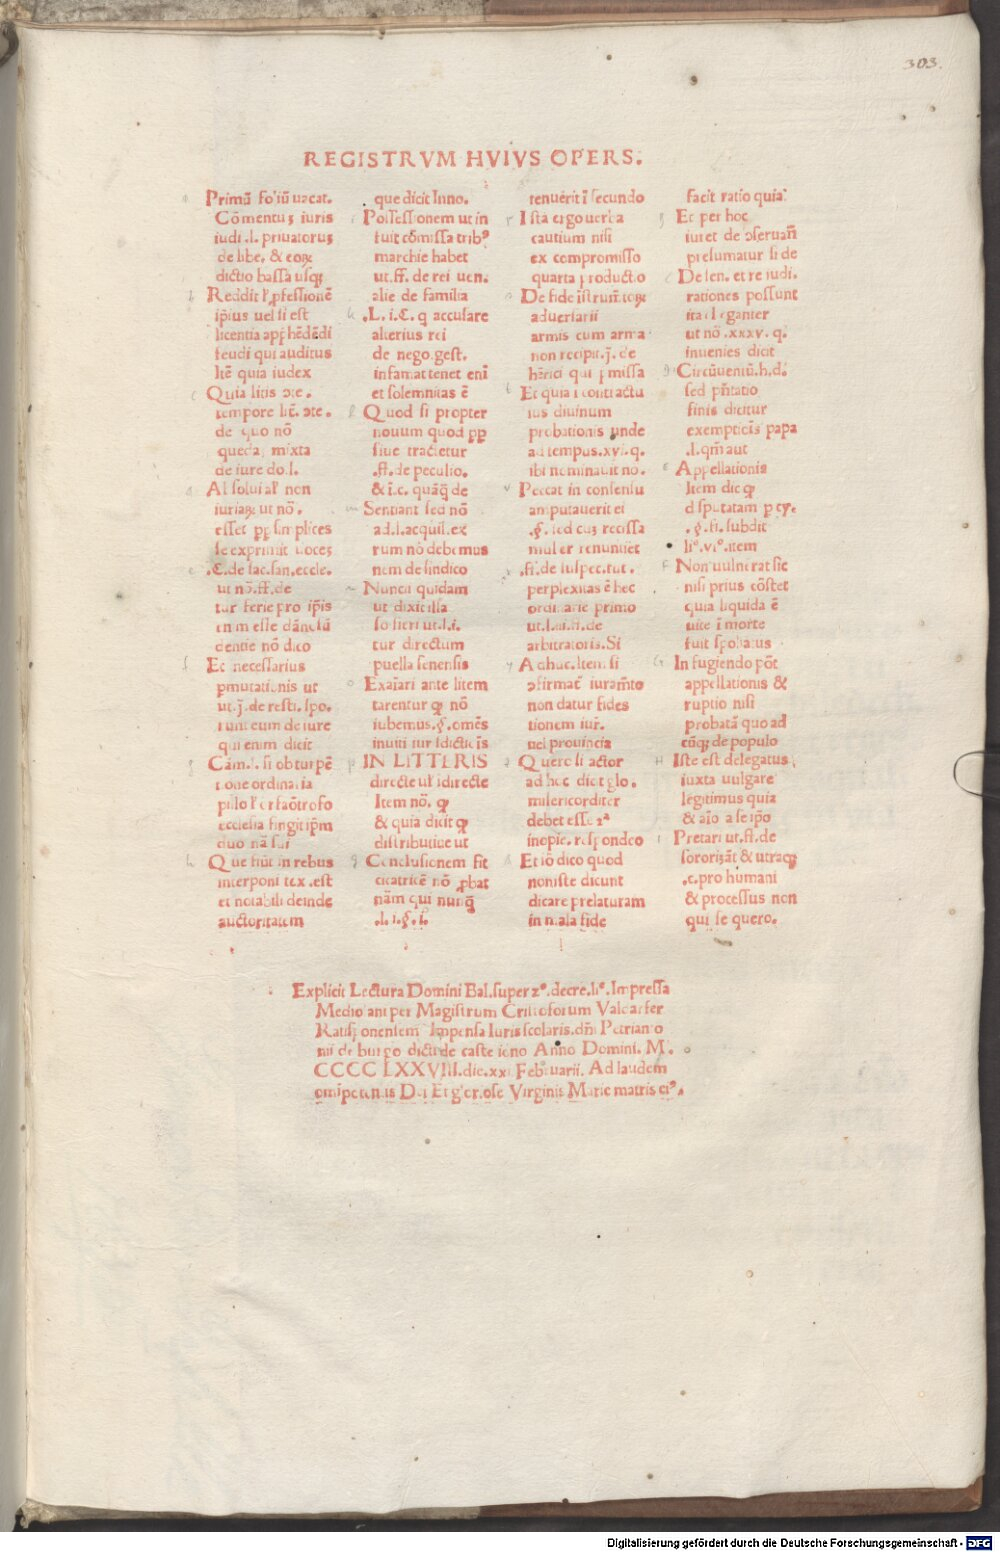 303.
REGISTRVM HVIVS OPERS.
Primā fo'iū uacat.
Cōmentuʒ iuris
iudi.l. priuatoruʒ
de libe. & eoꝝ
dictio bassa usqꝫ
Reddit ł ꝓfessionē
ip̄ius uel si est
licentia app̄hēdēdi
feudi qui auditus
litē quia iudex
Quia litis ɔte.
tempore lit̄. ɔte.
de quo nō
queda, mixta
de iure do.l.
Al solui al' non
iuriaꝝ ut nō.
esset ꝓꝑ simplices
se exprimit uoceʒ
.C.de sac.san.eccle.
ut nō.ff.de
tur ferie pro ip̄is
enim esse dānclū
dentie nō dico
Et necessarius
pmutationis ut
ut.j.de resti.spo.
runt eum de iure
qui enim dicit
Cām.l. si obturpē
tione ordinaria
ecclesia fingit ip̄m
duo nā sui
Que fiūt in rebus
interponi tex.est
et notabili deinde
auctoritatem
que dicit Inno.
Possessionem ut in
fuit cōmissa trib⁹
marchie habet
ut.ff. de rei uen.
alie de familia
.L.i.C. q accusare
alterius rei
de nego.gest.
infamat tenet eni
et solemnitas ē
Quod si propter
nouum quod ꝑp
siue tractetur
.ff.de peculio.
& i.c. quāqꝫ de
Sentiant sed nō
ad.l.acquil.ex
rum nō debemus
nem de sindico
Nuncii quidam
ut dixit illa
so fieri ut.l.i.
tur directum
puella senensis
Exaiari ante litem
tarentur qꝫ nō
iubemus.§.omēs
inuiti iur isdictiōis
IN LITTERIS
directe ul' idirecte
Item nō. qꝫ
& quia dicit qꝫ
distributiue ut
Conclusionem sit
cicatricē nō ꝓbat
nām qui nunqꝫ
.l.i.§.l.
tenuerit ī secundo
Ista ergo uerba
cautium nisi
ex compromisso
quarta productio
De fide īstrum̄.toꝝ
aduersarii
armis cum arma
non recipit.j. de
hēici qui pmissa
Et quia i contractu
ius diuinum
probationis unde
ad tempus.xvi.q.
ibi nominauit no.
Peccat in consensu
amputauerit ei
.§.sed cuʒ recissa
mulier renuntiet
.ff.de suspec.tut.
perplexitas ē hec
ordinarie primo
ut.l.iii.ff.de
arbitratoria.Si
Adhuc.Item si
ɔfirmat̄ iuram̄to
non datur fides
tionem iur.
uel prouincia
Quero si actor
ad hoc dicit glo.
misericorditer
debet esse
inopie. respondeo
Et iō dico quod
noniste dicunt
dicare prelaturam
in mala fide
facit ratio quia
Et per hoc
iuret de ɔseruan̄
presumatur si de
De sen. et re iudi.
rationes possunt
ita eleganter
ut nō.xxxv.q.
inuenies dicit
Circūuentū.h.d.
sed pn̄tatio
finis dicitur
exemptiōis papa
.l.qm̄ aut
Appellationis
Item dic qꝫ
disputatam
.§.fi. subdit
li⁰.vi⁰.item
Non uulnerat sic
nisi prius cōstet
quia liquida ē
uite ī morte
fuit spoliatus
In fugiendo pōt
appellationis &
ruptio nisi
probatā quo ad
cūqꝫ de populo
Iste est delegatus
iuxta uulgare
legitimus quia
& aīo a se ip̄o
Pretari ut.ff.de
sororizāt & utraqꝫ
.c.pro humani
& processus non
qui se quero.
Explicit Lectura Domini Bal.super z⁰.decre.li⁰.Impressa
Mediolani per Magistrum Cristoforum Valdarfer
Ratisponensem Impensa Iuris scolaris.dn̄i Petri anto
nii de burgo dicti de castelieno Anno Domini. M.
CCCC LXXVIII.die.xxi Februarii. Ad laudem
omīpotentis Dei Et glor.ose Virginis Marie matris ei⁹.
Digitalisierung gefördert durch die Deutsche Forschungsgemeinschaft - DFG